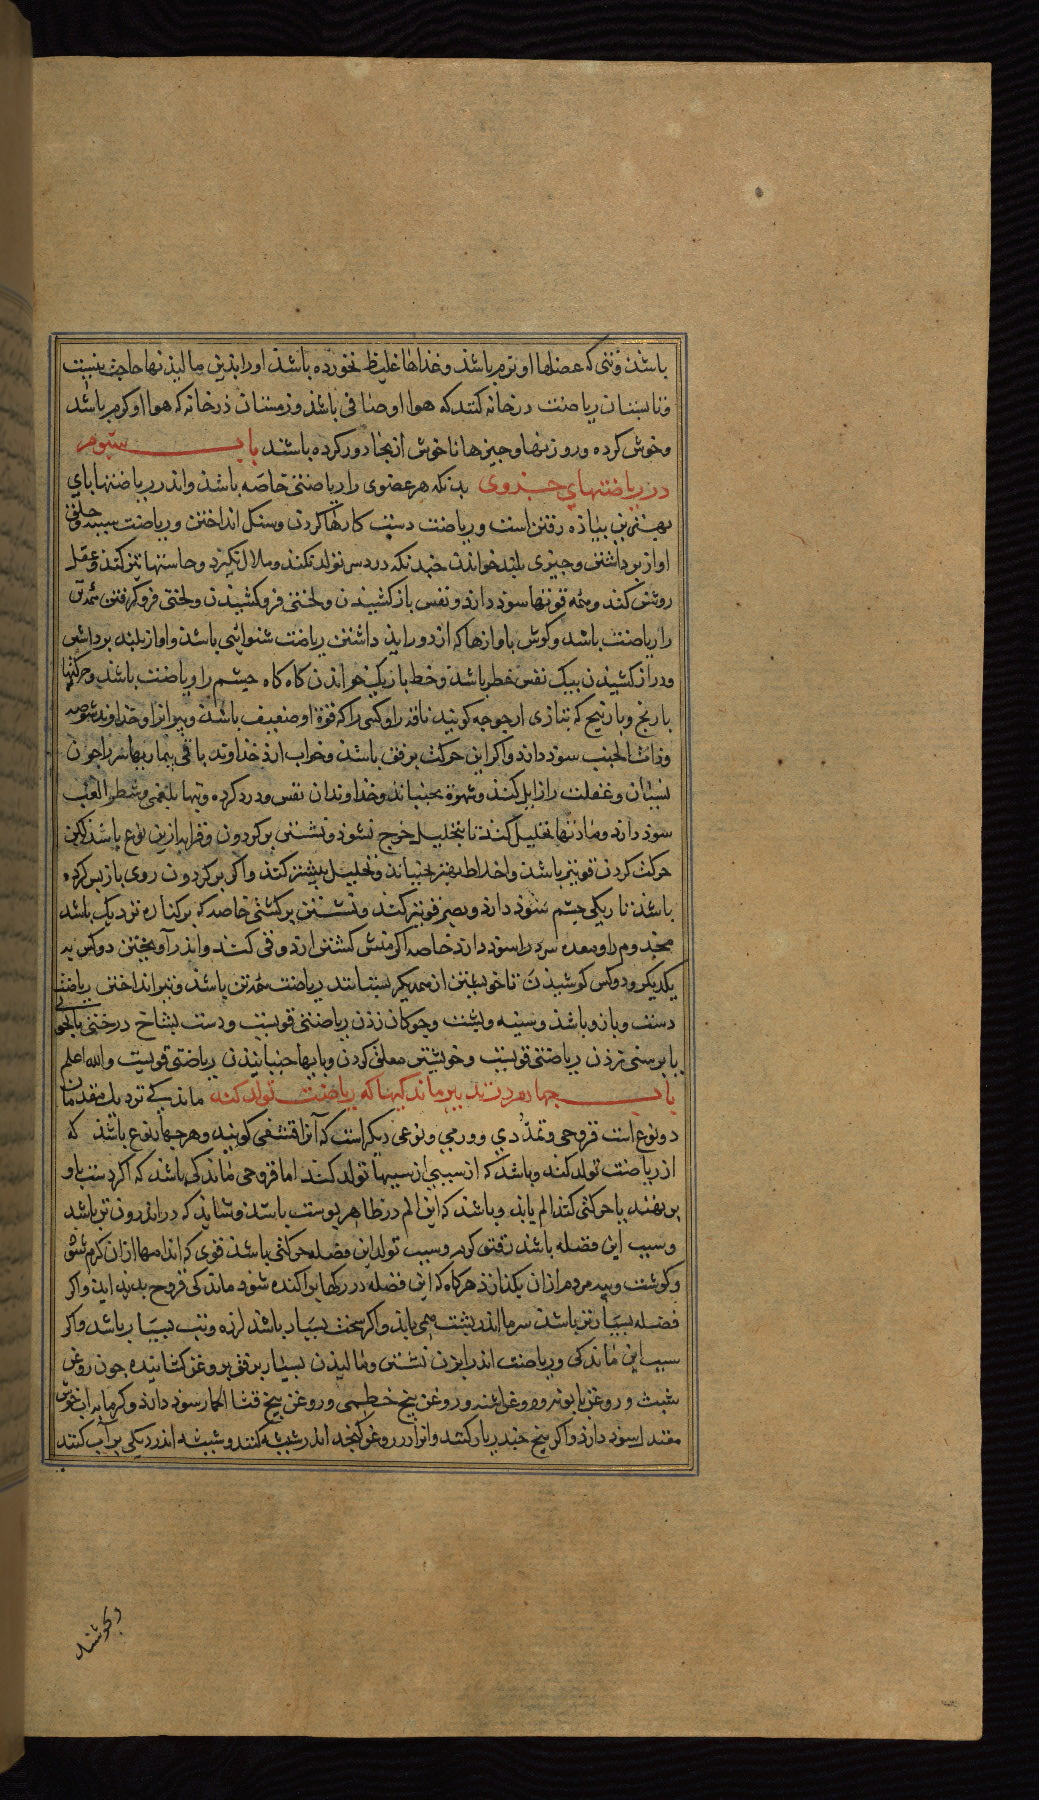 باشذ وقتی که عضلها او نرم باشذ و غذاها غلیظ نخورده باشذ او را بذین مالیذنها حاجت نیست
و تابستان ریاضت در خانه کنند که هواء او صافی باشذ و زمستان در خانه که هواء او گرم باشد
و خوش کرده و روزنها و جیزها ناخوش از آنجا دور کرده باشند باب سیوم
در ریاضتهای جزوی بدانکه هر عضوی را ریاضتی خاصه باشذ و اندر ریاضتها پای
بهترین پیاذه رفتن است و ریاضت دست کارها کردن و سنک انداختن و ریاضت سینه و حلق
اواز برداشتن و جیزی بلند خواندن جندانکه درد سر تولد نکند و ملال نکیرد و حاستها تیز کند و عقل
روشن کند و همه قوتها سوذ دارذ و نفس باز کشیذن و لختی فرو کشیذن و لختی فرو گرفتن همه تن
را ریاضت باشد و کوش باوازها که از دور آید داشتن ریاضت شنوائی باشذ و اواز بلند برداشتن
و دراز کشیذن بیک نفس خطر باشذ و خط باریک خواندن گاه گاه جشم را ریاضت باشذ و حرکتها
بارنج و بارنیح که بتازی ارجوحه کویند ناقه را و کسی را که قوة او ضعیف باشذ و پیرانرا و خداوند
و ذات الجنب سوذ دارد و اکر این حرکت برفق باشذ و خواب ارد خداوند باقی بیماریها سر را جون
نسیان و غفلت را زایل کند و شهوة بجنباند و خداوندان نقرس و درد کرده و تبها بلغمی و شطر الغب
سوذ دارد و مادتها تحلیل کند تا بتحلیل خرج شوذ و نشستن بر گردون و فرا باز بدین نوع باشذ لکن
حرکت گردون قویتر باشذ و اخلاط بهتر بجنباند و تحلیل بیشتر کند و اکر بر گردون روی باز پس کرده
باشذ تاریکی جشم سوذ دارد و بصر قویتر کند و نشستن بر کشتی خاصه که بر کناره نزدیک باشد
مجذوم را و معده سرد را سوذ دارد خاصه اکر منش کشتن ارد و قی کند و اندر آویختن دو کس به
یکدیکر و دو کس کوشیذن تا خویشتن از یکدیکر بستانند ریاضت همه تن باشذ و تیر انداختن ریاضت
دست و بازو باشذ و سینه و پشت و جوکان زذن ریاضتی قویست و دست بشاخ درختی
یا برسنی زذن ریاضتی قویست و خویشتن معلق کردن و پایها جنبانیذن ریاضتی قویست والله اعلم
باب جهارم در تدبیر ماندکیها که ریاضت تولد کند ماندکی نزدیک متقدمان
دو نوع است قروحی و تمدّدی و ورمی و نوعی دیکر است که آنرا قشفی کویند و هر جهار نوع باشذ که
از ریاضت تولد کند و باشذ که از سببی از سببها تولد کند اما قروحی ماندکی باشد که اگر دست باو
بر نهند یا حرکتی کند الم یابذ و باشذ که این الم در ظاهر پوست باشذ و شاید که در اندرون تر باشد
و سبب این فضله باشد رقیق کرم و سبب تولد این فضله حرکتی باشذ قوی که اندامها از آن کرم شود
و کوشت و پیه مردم از آن بکدازد هرکاه که این فضله در رکها پراکنده شوذ ماندکی قروح بدید آید و اکر
فضله بسیارتر باشذ سرما اندر پشت همی یابذ و اکر سخت بسیار باشد لرزه و تب بسیار باشد و اکر
سبب این ماندکی ریاضت اندر ابزن نشستن و مالیذن بسیار برفق بروغن کشاینده جون روغن
شبث و روغن بابونه و روغن اشنه و روغن بیخ خطمی و روغن بیخ قثا الحمار سوذ دارذ و گرمابه آب خوش
معتدل سوذ دارد و اکر بیخ خیار کنند و آنرا در روغن کنجد اندر شیشه کنند و شیشه اندر دیکی بر آب کنند
و بجوشند